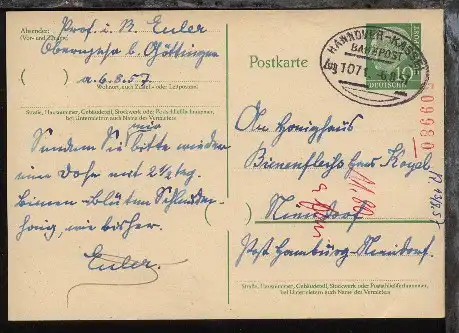 Absender: Prof. i. R. Euler
(Vor- und Zuname)
Obernjesa b. Göttingen
( ) a. 6.8.57
Wohnort, auch Zustell- oder Leitpostamt
Straße, Hausnummer, Gebäudeteil, Stockwerk oder Postschließfachnummer,
bei Untermietern auch Name des Vermieters
mir
Senden Sie bitte wieder
eine Dose mit 2½ kg.
bienen-Blüten Schleuder-
honig, wie bisher.
Euler.
Postkarte
HANNOVER-KASSEL
BAHNPOST
Zug 1071
DEUTSCHE
10
09980
An Honighaus
Bienenfleiß
Niendorf
( )
Post Hamburg-Niendorf.
Straße, Hausnummer, Gebäudeteil, Stockwerk oder Postschließfachnummer,
bei Untermietern auch Name des Vermieters